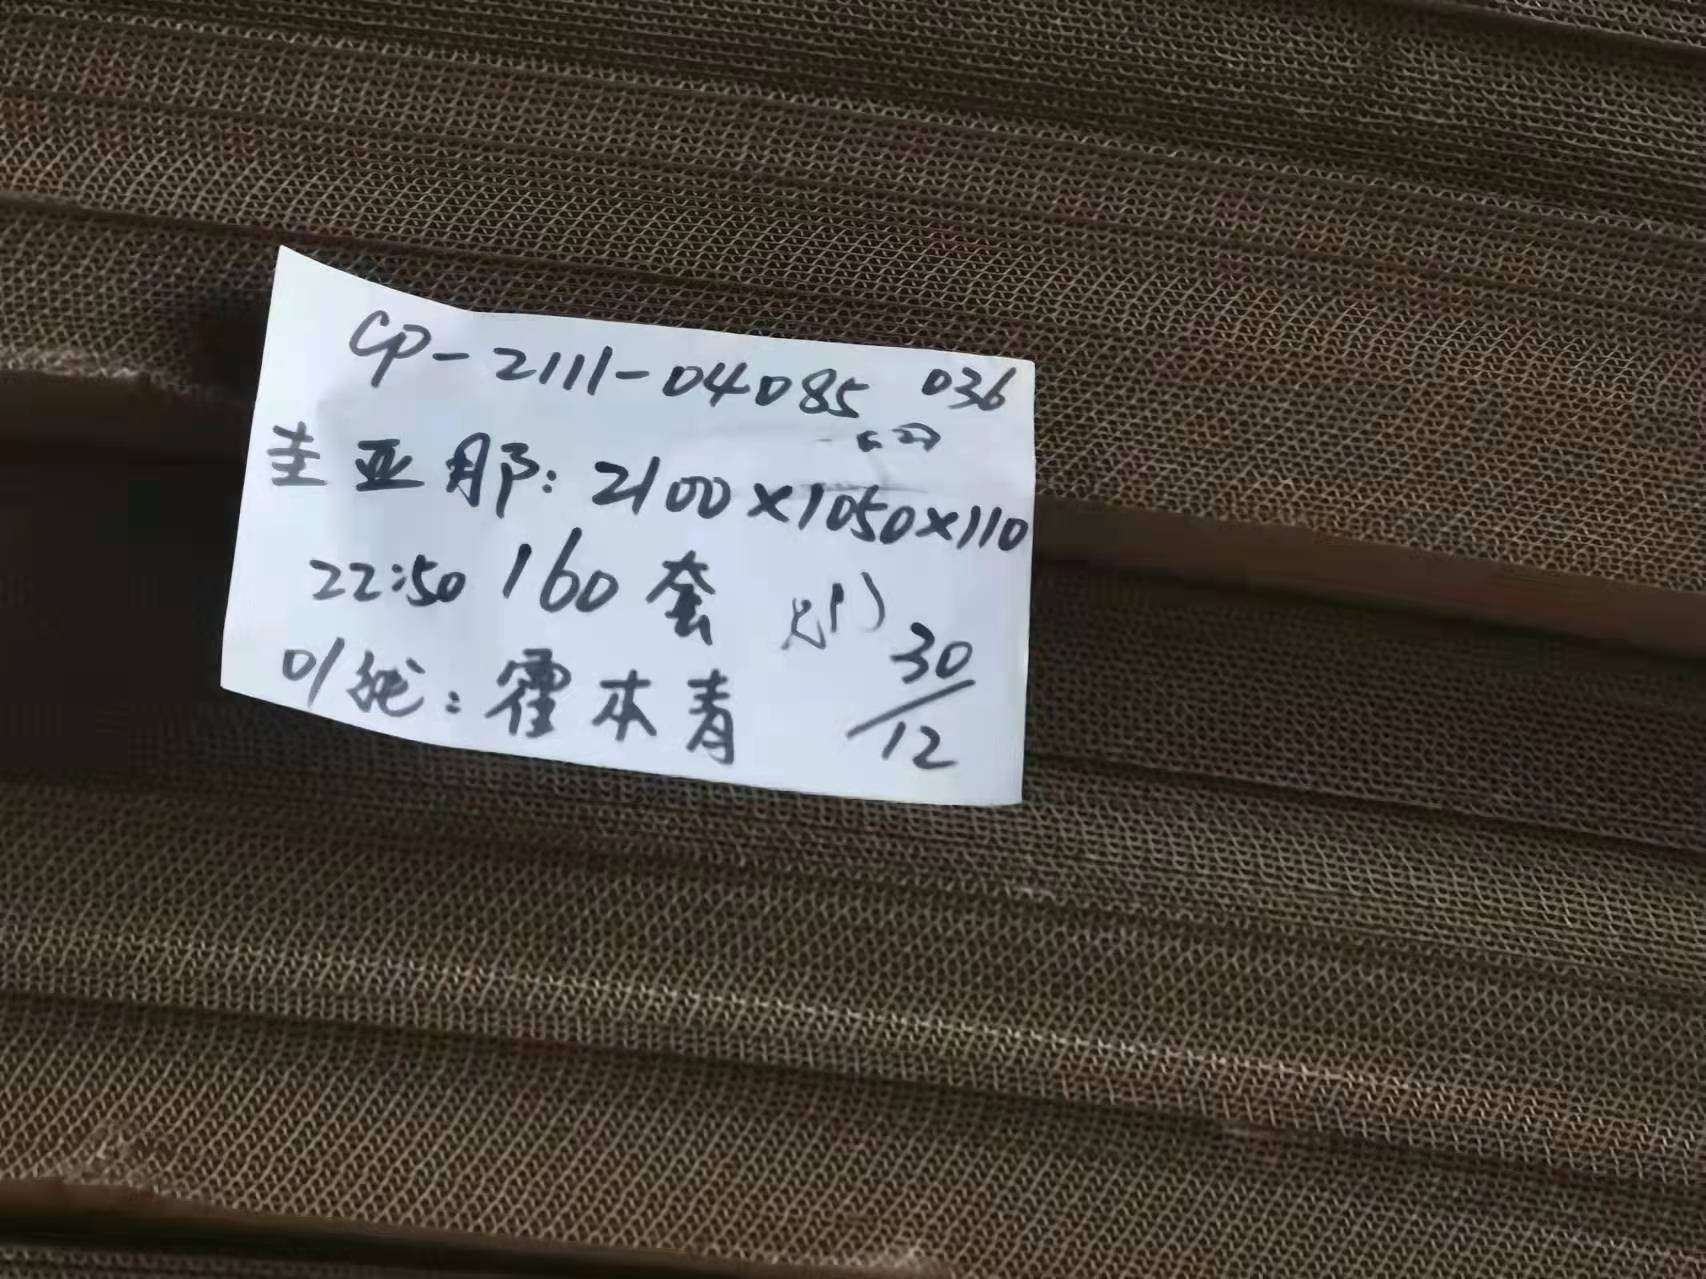 CP-2111-04085 036
圭亚那: 2100×1050×110
22:50 160套
01线: 霍本青 30/12